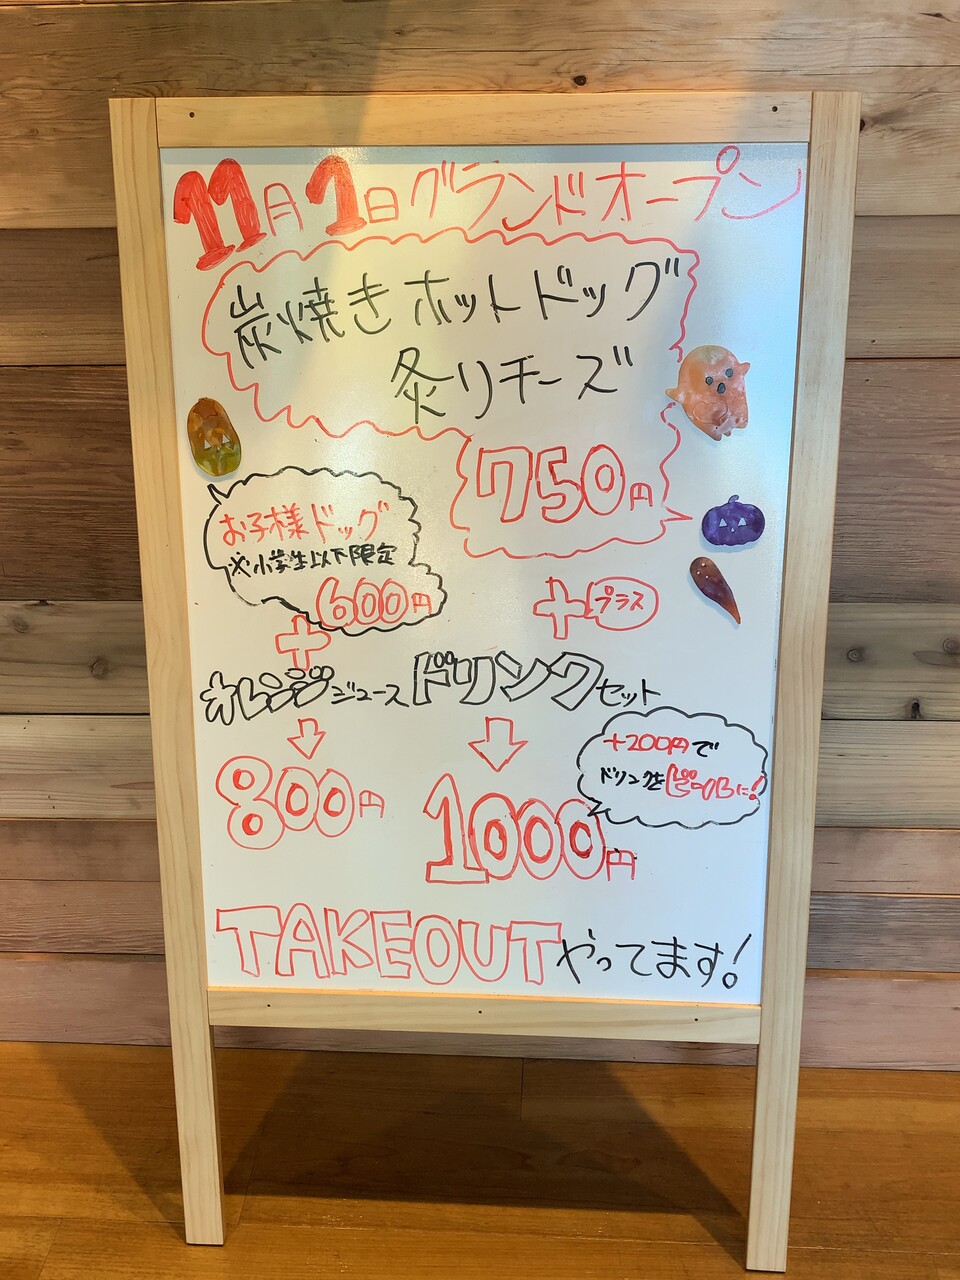 11月1日グランドオープン
炭焼きホットドッグ
炙りチーズ
750円
お子様ドッグ
※小学生以下限定
600円
+
オレンジジュース
800円
+プラス
ドリンクセット
1000円
+200円で
ドリンクをビールに!
TAKEOUTやってます!